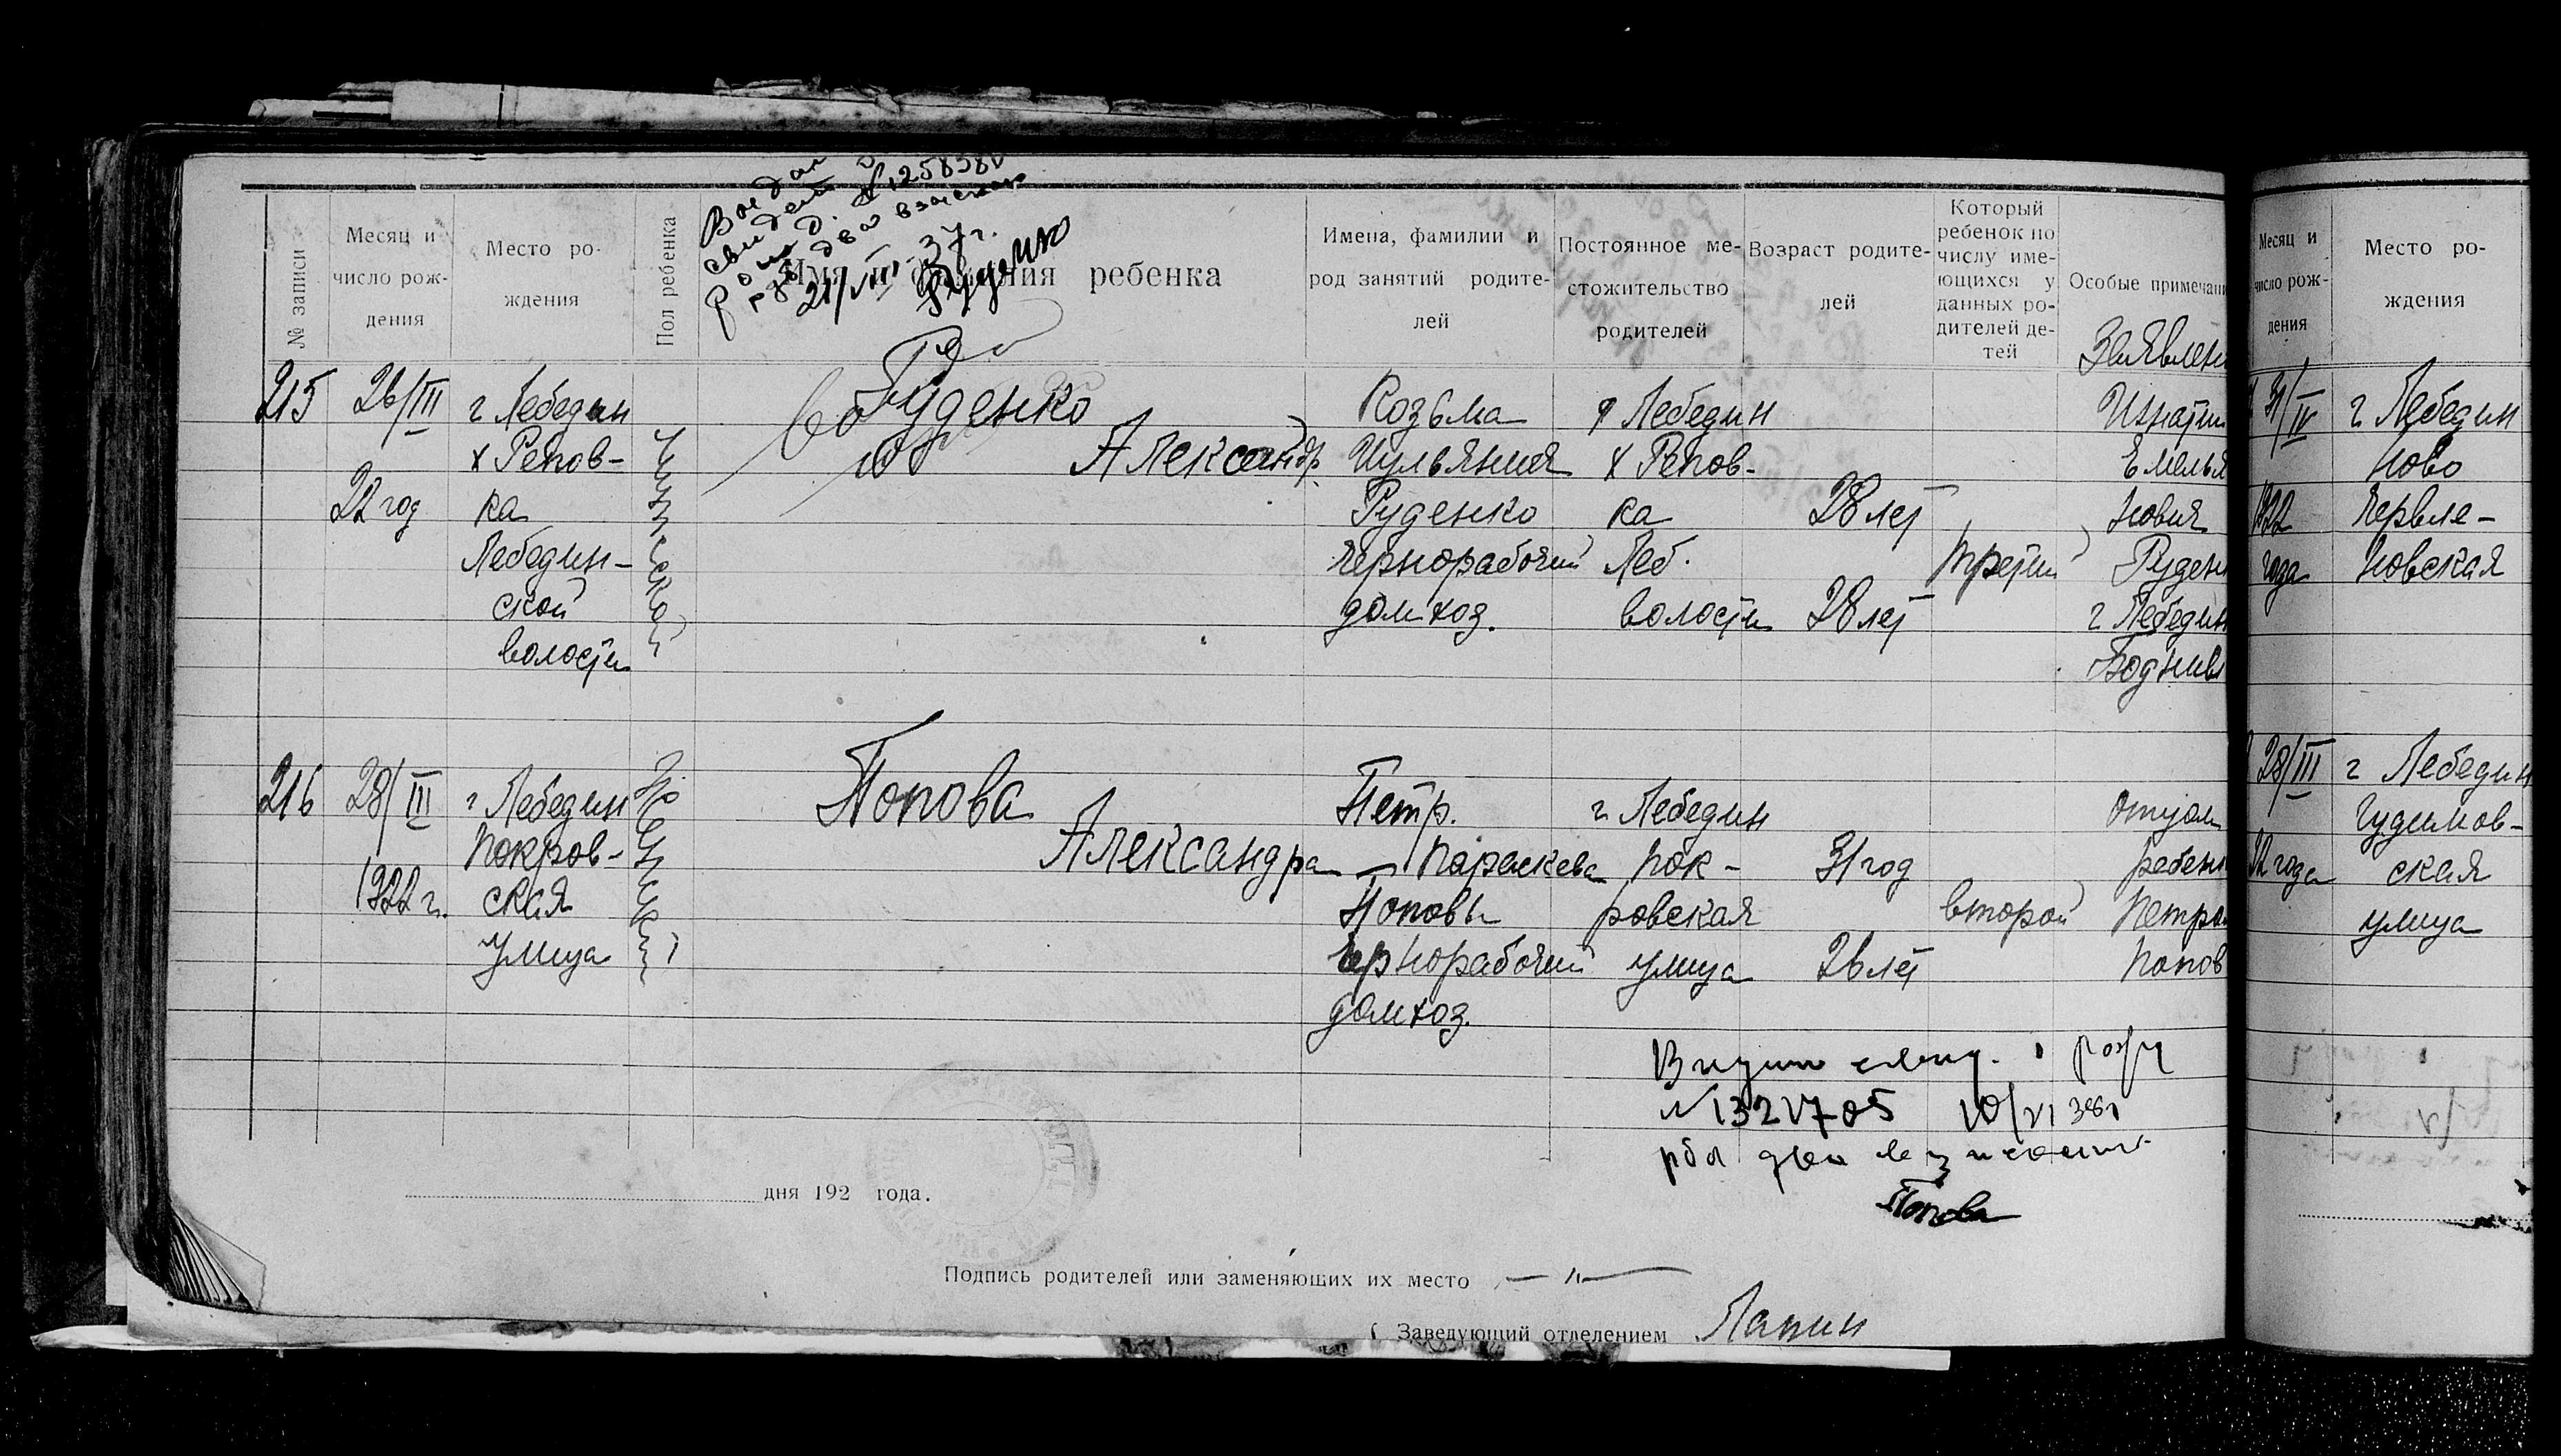 № записи
Месяц и
число рож-
дения
Место ро-
ждения
Пол ребенка
Имя и фамилия ребенка
Имена, фамилии и
род занятий родите-
лей
Постоянное ме-
стожительство
родителей
Возраст родите-
лей
Который
ребенок по
числу име-
ющихся у
данных ро-
дителей де-
тей
Особые примечани
Заявлен
свидет
рожд. №
два взыскан
21/VII-37 г.
Руденко
215
26/III
22 год
г Лебедин
х Репов-
ка
Лебедин-
ской
волости
Мужской
Руденко
Александр
Козьма
Иульяния
Руденко
чернорабочий
домхоз.
г Лебедин
х Репов-
ка
Леб.
волости
28 лет
28 лет
третий
Игнатий
Емелья
новия
Руден
г Лебедин
216
28/III
1922 г.
г Лебедин
Покров-
ская
улица
Женский
Попова
Александра
Петр.
Параскева
Поповы
чернорабочий
домхоз.
г Лебедин
Пок-
ровская
улица
31 год
26 лет
второй
Отцом
ребен
Петро
Попов
№ 1321705
Попова
дня 192 года.
Подпись родителей или заменяющих их место
Заведующий отделением Лапин
Месяц и
число рож-
дения
Место ро-
ждения
31/IV
1922
года
г Лебедин
Ново
Червле-
новская
28/III
22 года
г Лебедин
Гудимов-
ская
улица